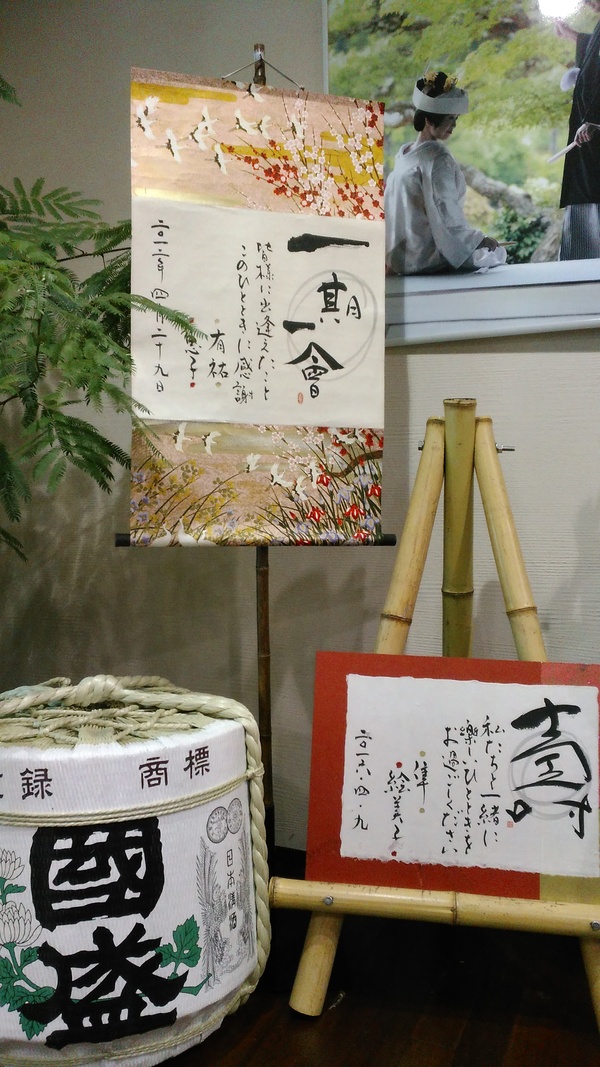 一期一會
皆様に出逢えたこと
このひとときに感謝
有祐
恵子
二〇一二年四月二十九日
壽
私たちと一緒に
楽しいひとときを
お過ごしください
隼
絵美子
二〇一六・四・九
商標
登録
國盛
日本清酒